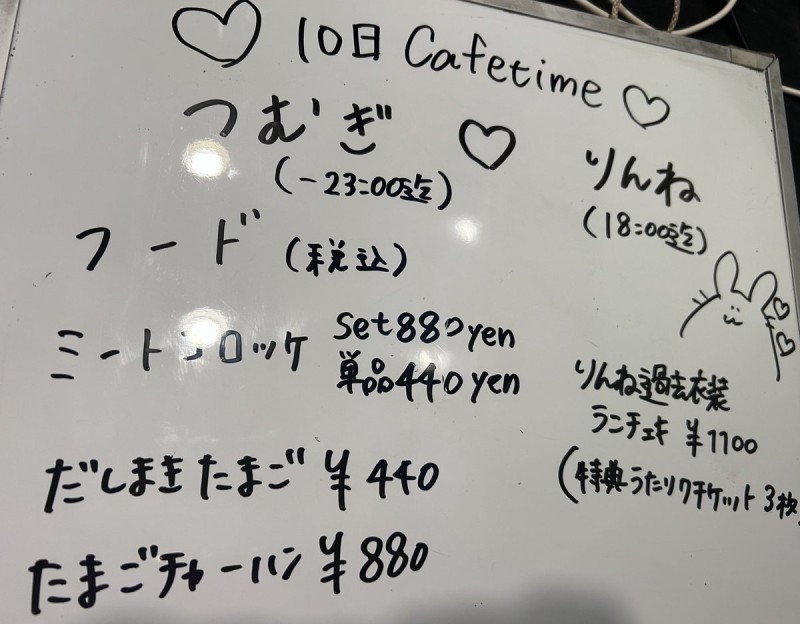 ♡ 10日 Cafetime ♡
つむぎ ♡
(-23:00迄)
りんね
(18:00迄)
フード (税込)
ミートコロッケ set880yen
単品440yen
だしまきたまご ¥440
たまごチャーハン ¥880
りんね過去衣装
ランチェキ ¥1100
(特典うたリクチケット3枚